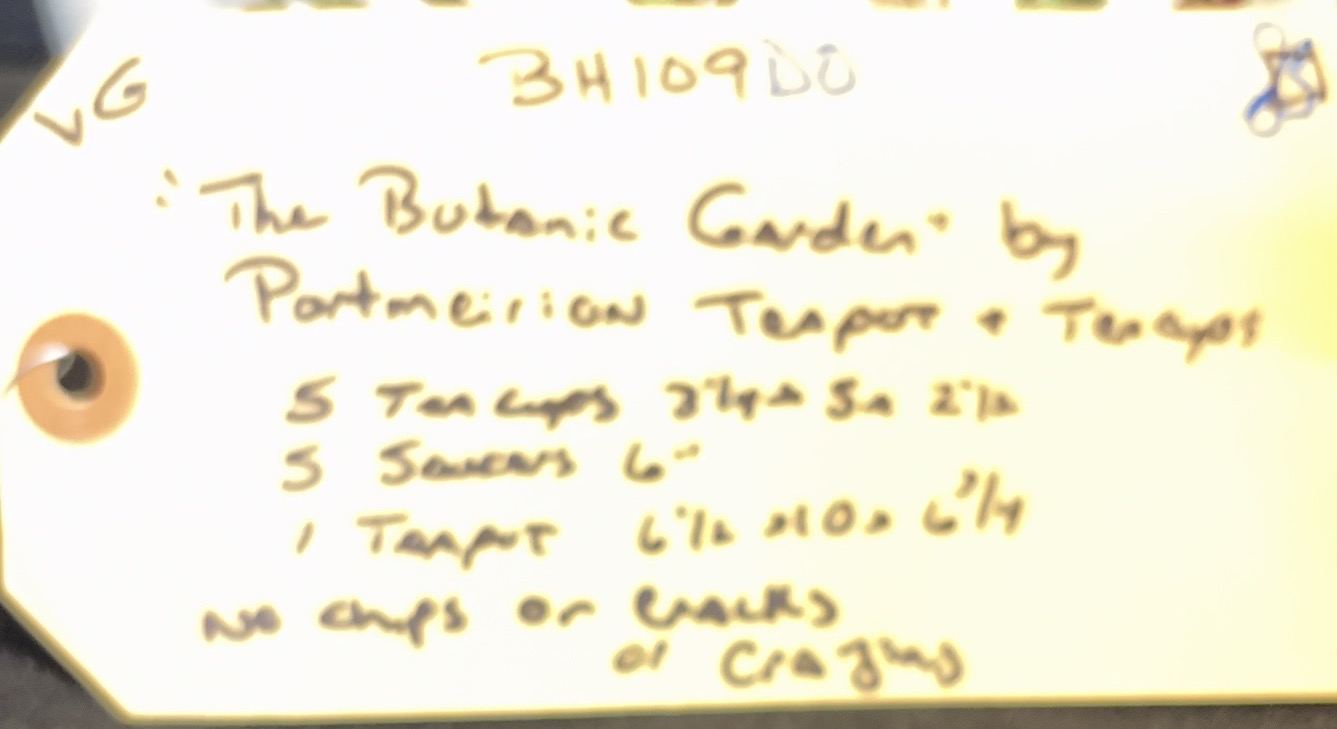 VG
BH109DO
"The Botanic Garden" by
Portmeirion Teapot + Teacups
5 Teacups 3 1/4 x 5 x 2 1/2
5 Saucers 6"
1 Teapot 6 1/2 x 10 x 6 3/4
No chips or cracks
or crazing